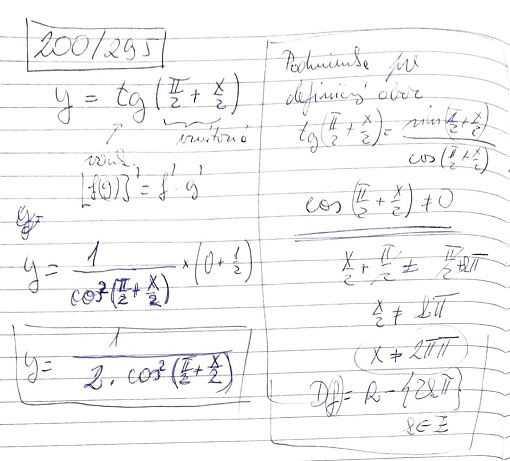 200/295
y = tg(π/2 + x/2)
vnútorná
vonk.
[f(g)]' = f' · g'
y = 1/cos²(π/2 + x/2) × (0 + 1/2)
y = 1/(2 · cos²(π/2 + x/2))
Podmienka pre
definičný obor
tg(π/2 + x/2) = sin(π/2 + x/2)/cos(π/2 + x/2)
cos(π/2 + x/2) ≠ 0
x/2 + π/2 ≠ π/2 + kπ
x/2 ≠ kπ
D(f) = R - {2kπ}
k ∈ Z